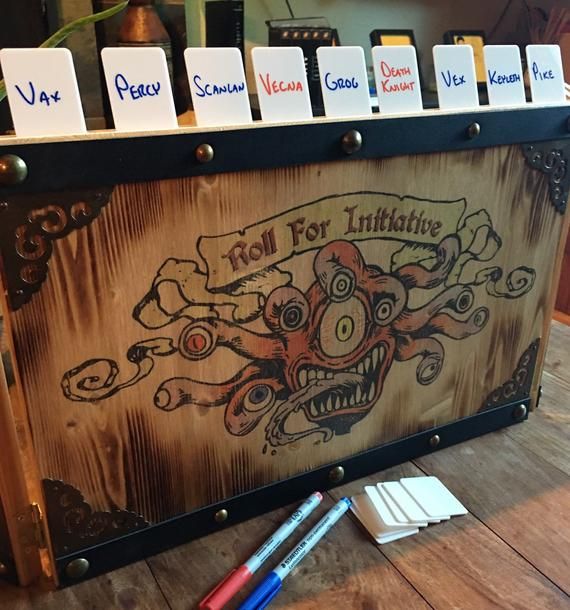 Vax
Percy
Scanlan
Vecna
Grog
Death
Knight
Vex
Keyleth
Pike
Roll For Initiative
STAEDTLER